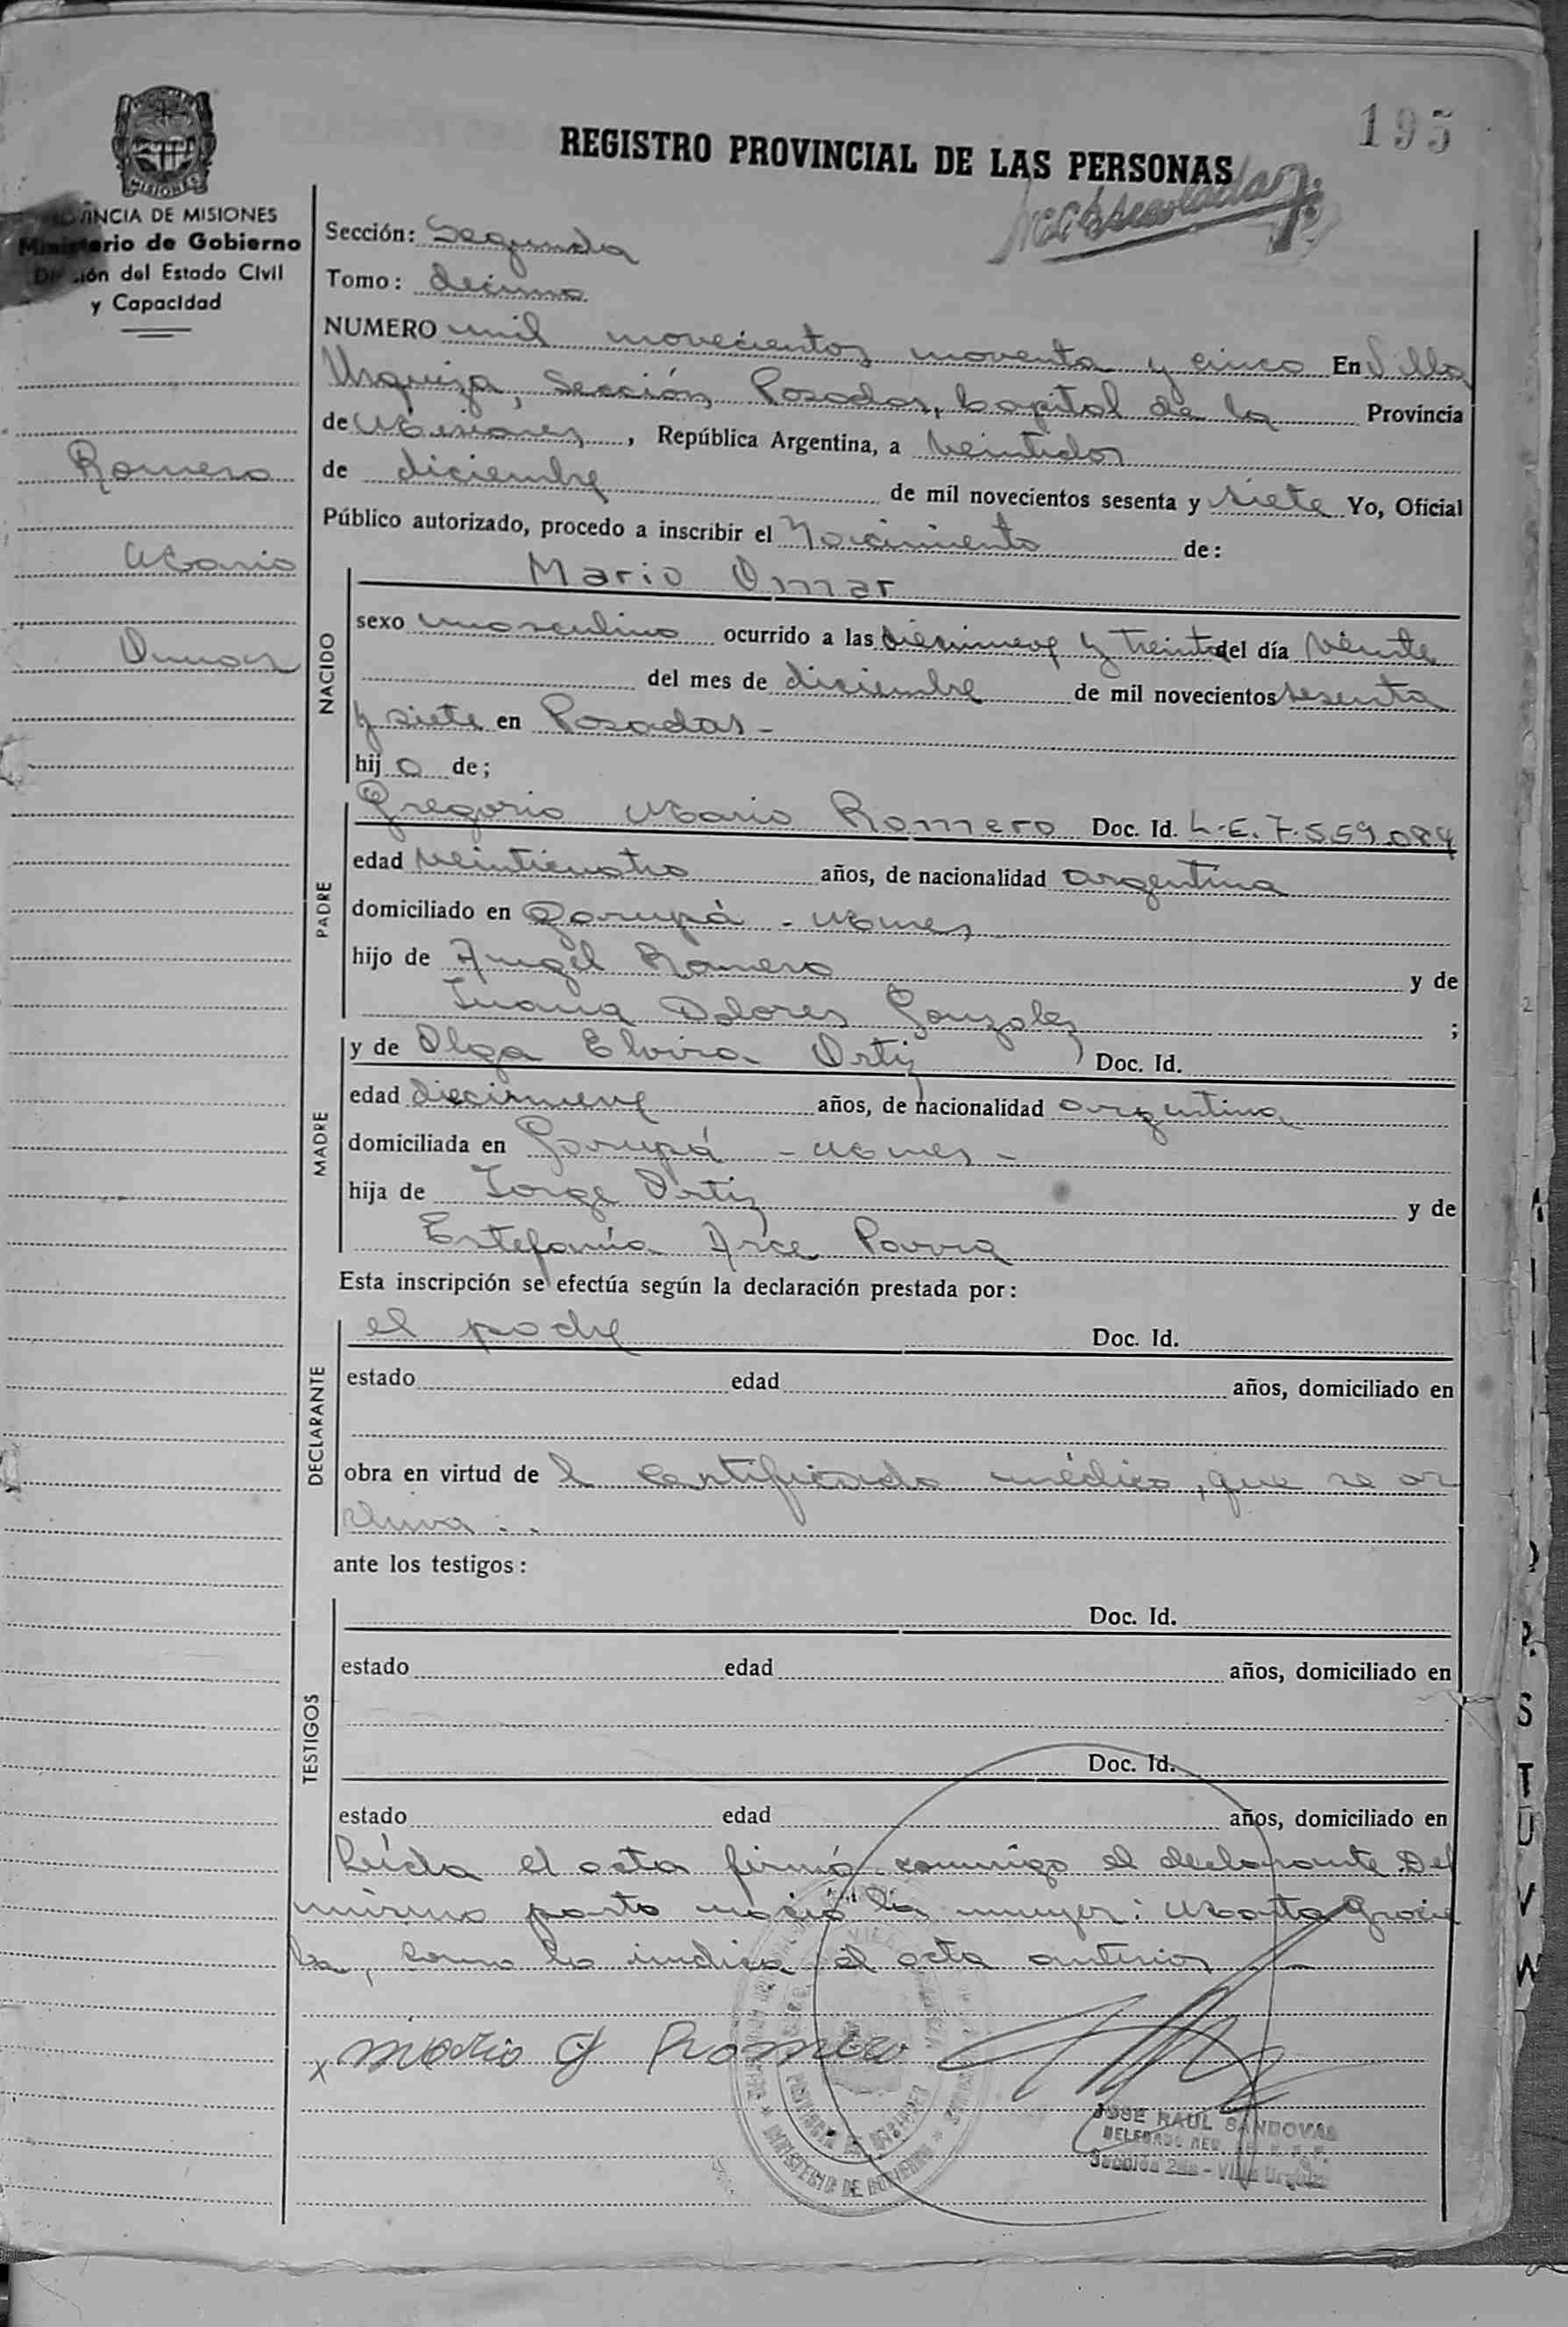 195
REGISTRO PROVINCIAL DE LAS PERSONAS
MISIONES
PROVINCIA DE MISIONES
Ministerio de Gobierno
División del Estado Civil
y Capacidad
Romero
Mario
Omar
Sección: Segunda
Tomo: decimo
NUMERO mil novecientos noventa y cinco En Villa
Urquiza, Sección Posadas, Capital de la Provincia
de Misiones, República Argentina, a veintidos
de diciembre de mil novecientos sesenta y siete Yo, Oficial
Público autorizado, procedo a inscribir el Nacimiento de:
NACIDO
Mario Omar
sexo masculino ocurrido a las diecinueve y treinta del día veinte
del mes de diciembre de mil novecientos sesenta
y siete en Posadas -
hijo de;
PADRE
Gregorio Mario Romero Doc. Id. L.E. 7.559.084
edad veinticuatro años, de nacionalidad argentina
domiciliado en Garupá - Mnes
hijo de Angel Romero y de
Juana Dolores Gonzalez ;
MADRE
y de Olga Elvira Ortiz Doc. Id.
edad diecinueve años, de nacionalidad argentina
domiciliada en Garupá - Mnes -
hija de Jorge Ortiz y de
Estefanía Arce Parra
Esta inscripción se efectúa según la declaración prestada por:
DECLARANTE
el padre Doc. Id.
estado edad años, domiciliado en
obra en virtud de l certificado médico, que se ar
chiva..
ante los testigos:
TESTIGOS
Doc. Id.
estado edad años, domiciliado en
Doc. Id.
estado edad años, domiciliado en
Leída el acta firmó conmigo el declarante. Del
mismo parto nació la mujer: Marta Gracie
la, como lo indica el acta anterior. -
x Mario G Romero
JOSE RAUL SANDOVAL
DELEGADO REG.
Sección 2da - Villa Urquiza
PROVINCIA DE MISIONES
MINISTERIO DE GOBIERNO
S
T
U
V
W